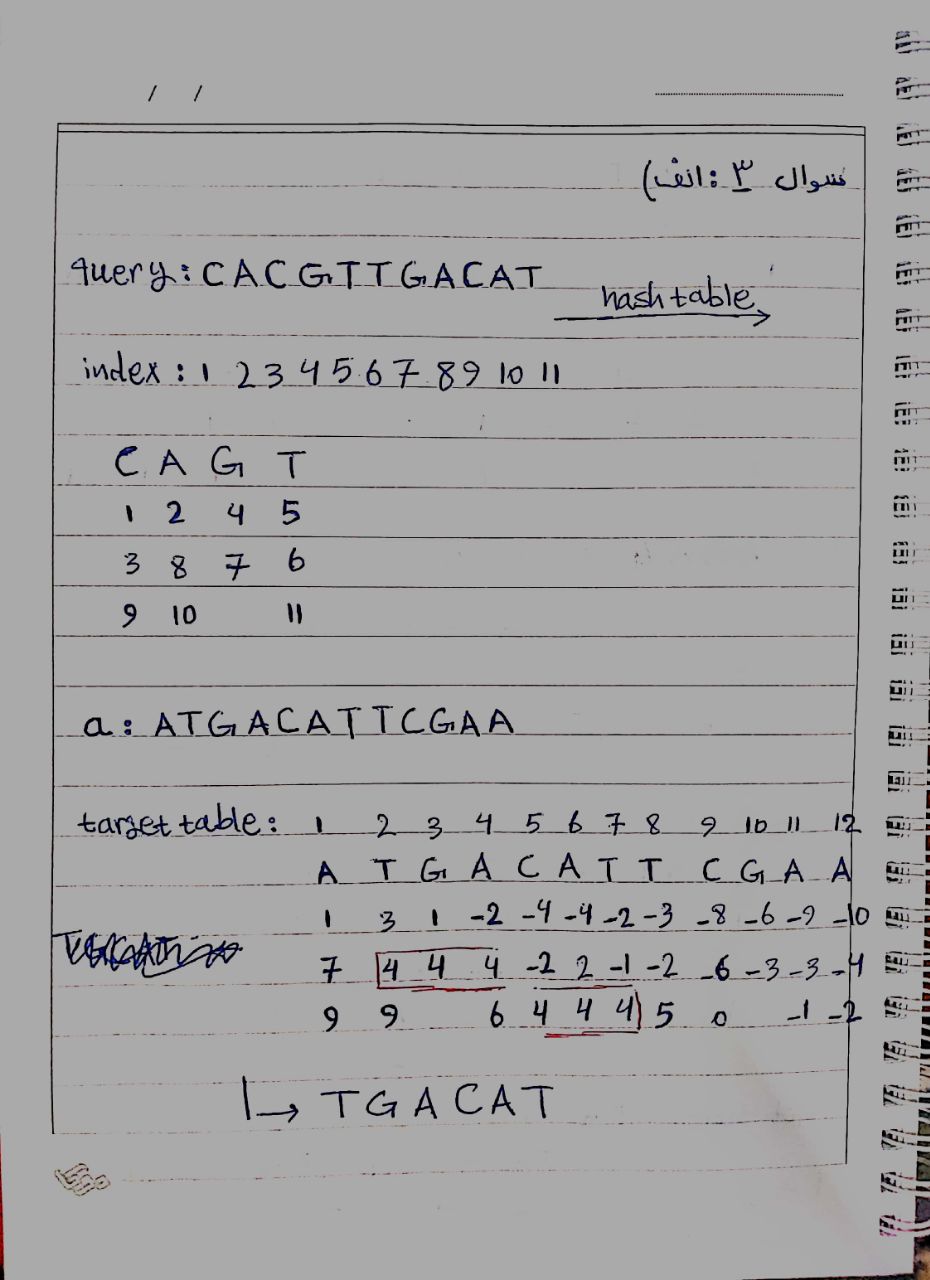 / /
سوال ۳ : الف)
query: CACGTTGACAT
hash table
index: 1 2 3 4 5 6 7 8 9 10 11
C A G T
1 2 4 5
3 8 7 6
9 10 11
a: ATGACATTCGAA
target table: 1 2 3 4 5 6 7 8 9 10 11 12
A T G A C A T T C G A A
1 3 1 -2 -4 -4 -2 -3 -8 -6 -9 -10
7 4 4 4 -2 2 -1 -2 -6 -3 -3 -4
9 9 6 4 4 4 5 0 -1 -2
↳ TGACAT